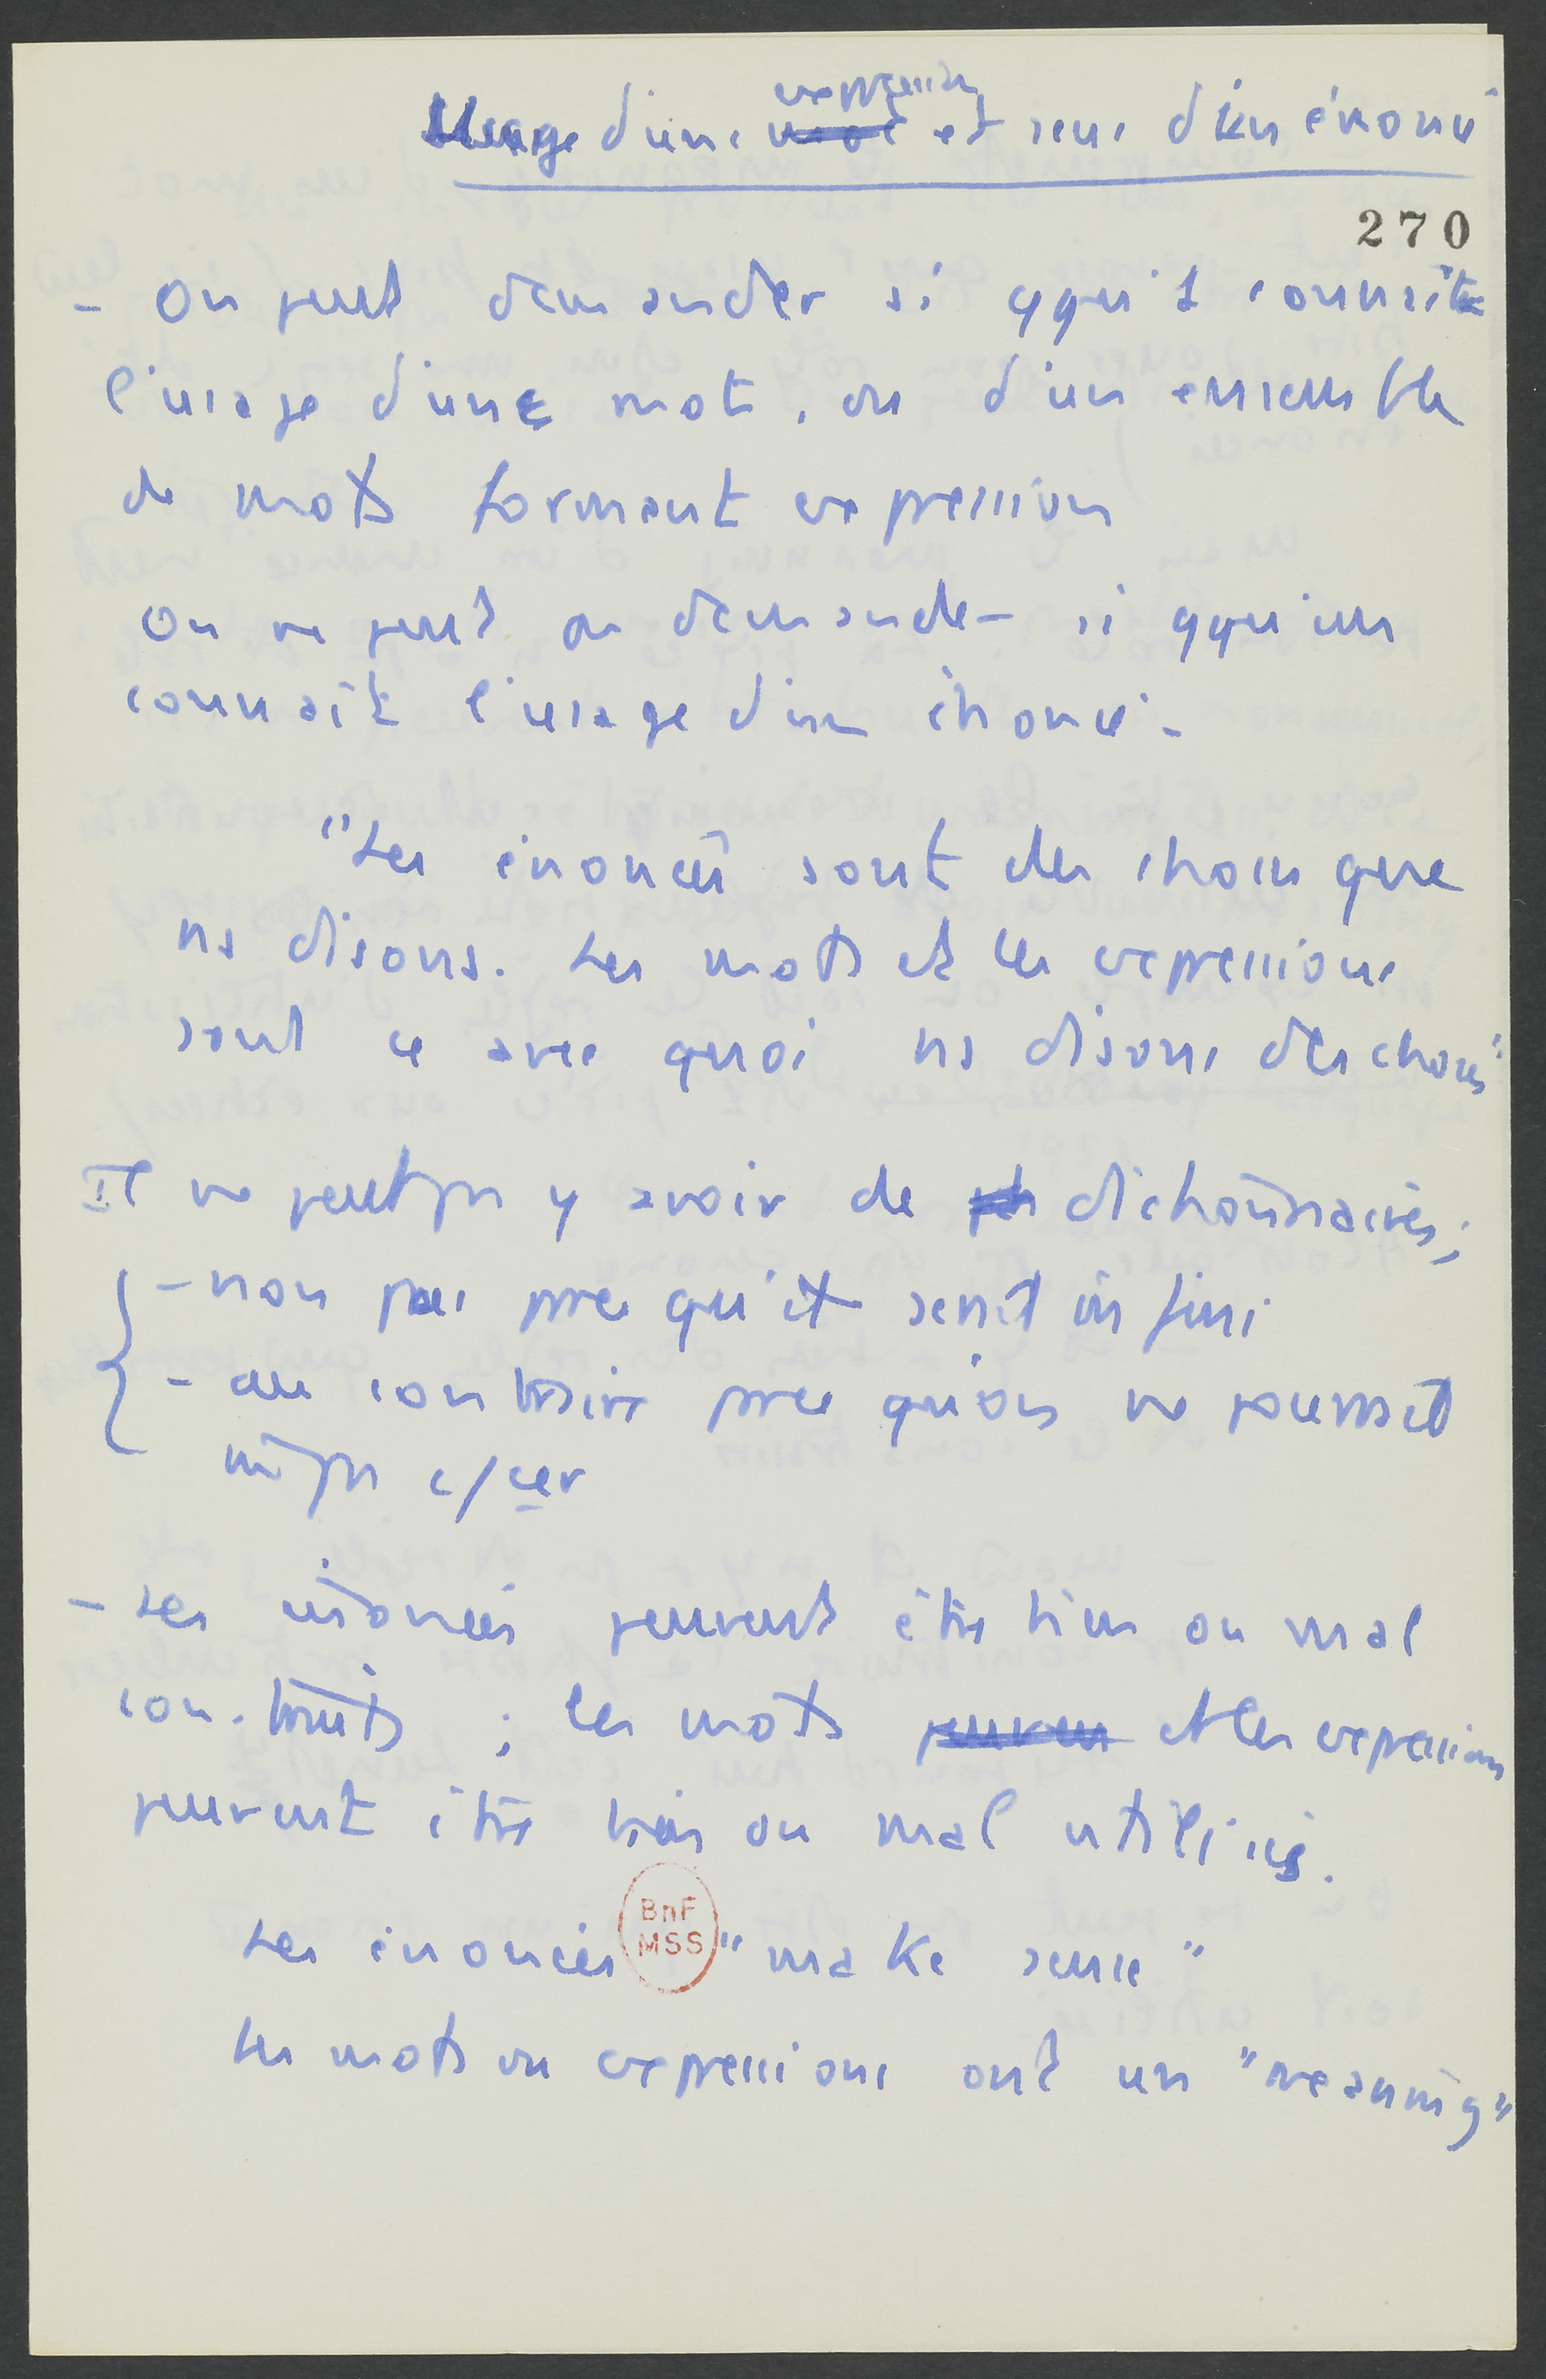 Usage d'une expression et sens d'un énoncé
270
- On peut demander si qqu'1 connaît
l'usage d'une mot, ou d'un ensemble
de mots formant expression
On ne peut pas demander si qqu'un
connaît l'usage d'un énoncé.
"Les énoncés sont des choses que
ns disons. Les mots et les expressions
sont ce avec quoi ns disons des choses"
Il ne peut pas y avoir de dictionnaires ;
- non pas parce qu'il serait infini
- au contraire parce qu'on ne pourrait
mê pas c/cer
- Les énoncés peuvent être bien ou mal
construits ; les mots et les expressions
peuvent être bien ou mal utilisés.
Les énoncés "make sense"
BnF
MSS
Les mots ou expressions ont un "meaning"